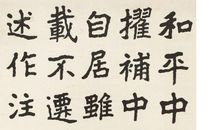 和平中
擢補中
自居雖
載不遷
述作注